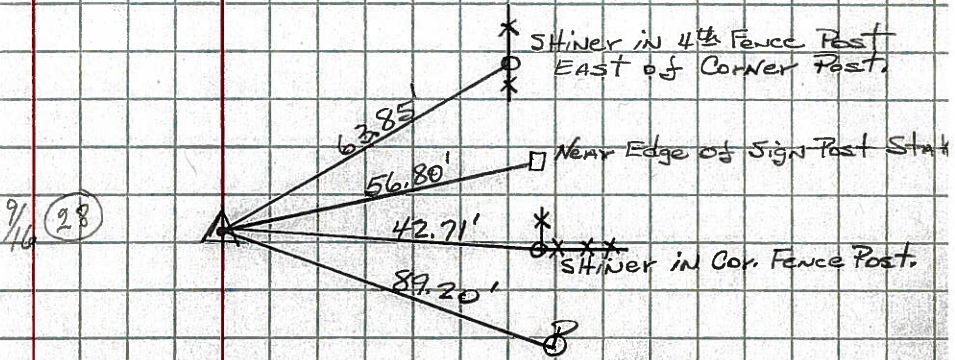 SHiner in 4th Fence Post
EAST of Corner Post.
63.85'
Near Edge of Sign-Post
56.80'
9/16 28
42.71'
SHiner in Cor. Fence Post.
89.20'
P